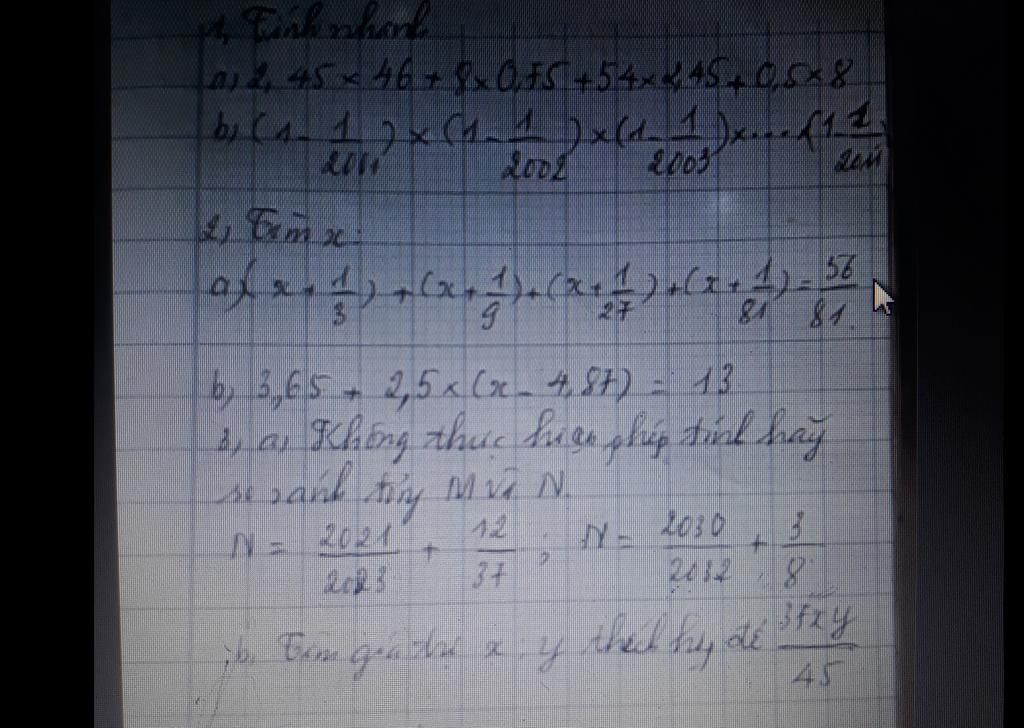 1, Tính nhanh
a, 2,45 × 46 + 8 × 0,75 + 54 × 2,45 + 0,5 × 8
b, (1 - 1/2001) × (1 - 1/2002) × (1 - 1/2003) × .... (1 - 1/2011
2, Tìm x:
a) (x + 1/3) + (x + 1/9) + (x + 1/27) + (x + 1/81) = 56/81
b, 3,65 + 2,5 × (x - 4,87) = 13
3, a, Không thực hiện phép tính hãy
so sánh M và N.
N = 2021/2023 + 12/37 ; N = 2030/2032 + 3/8
b. Tìm giá trị x, y thích hợp để 37xy/45